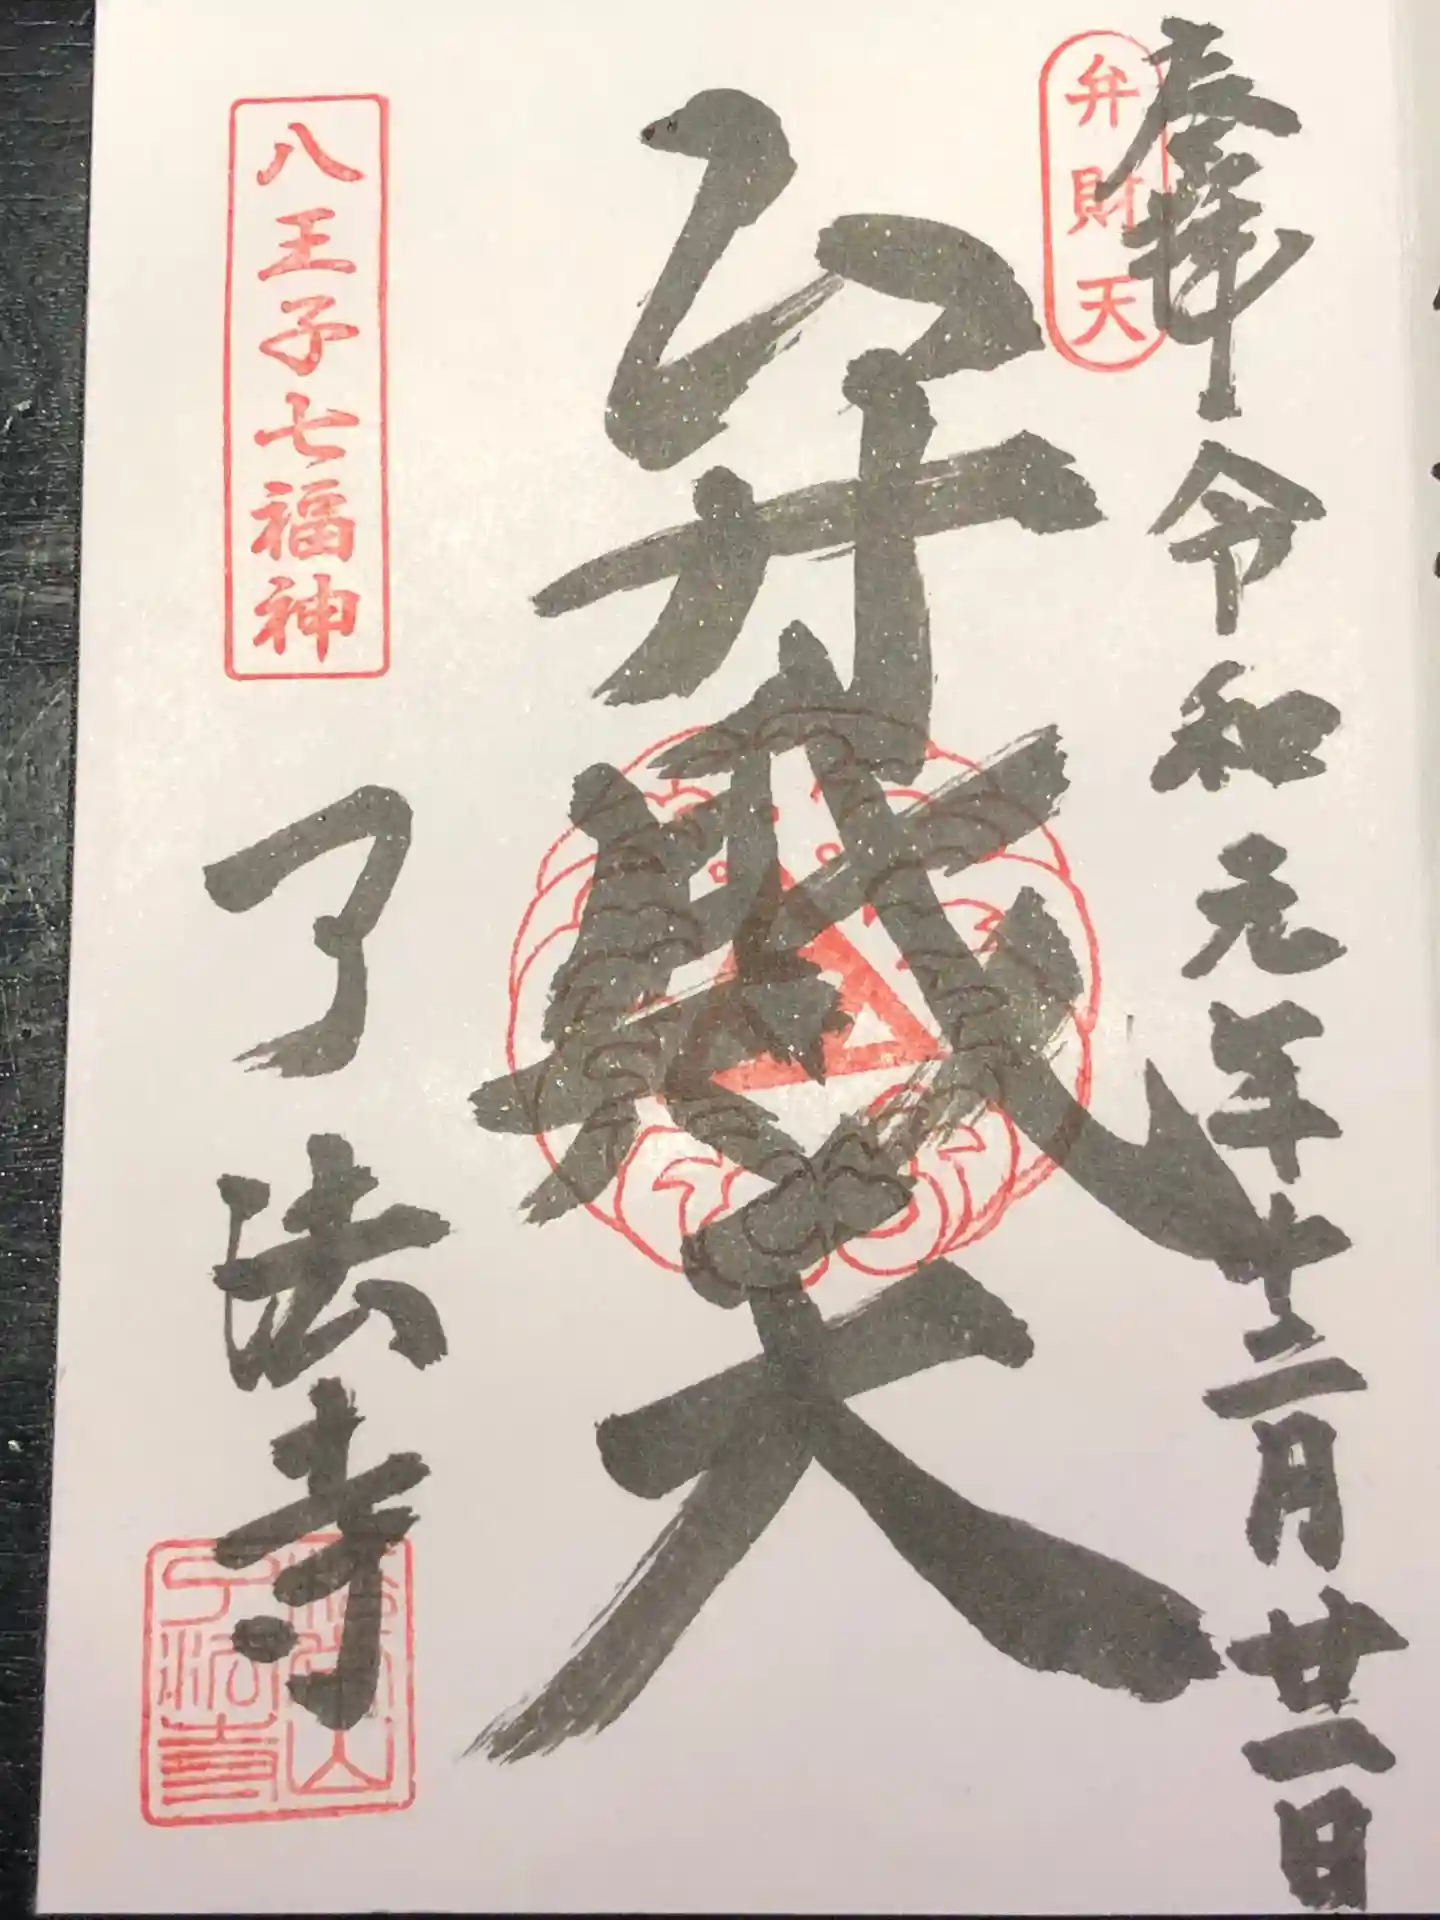 奉拝 令和元年十二月廿一日
弁財天
弁財天
八王子七福神
了法寺